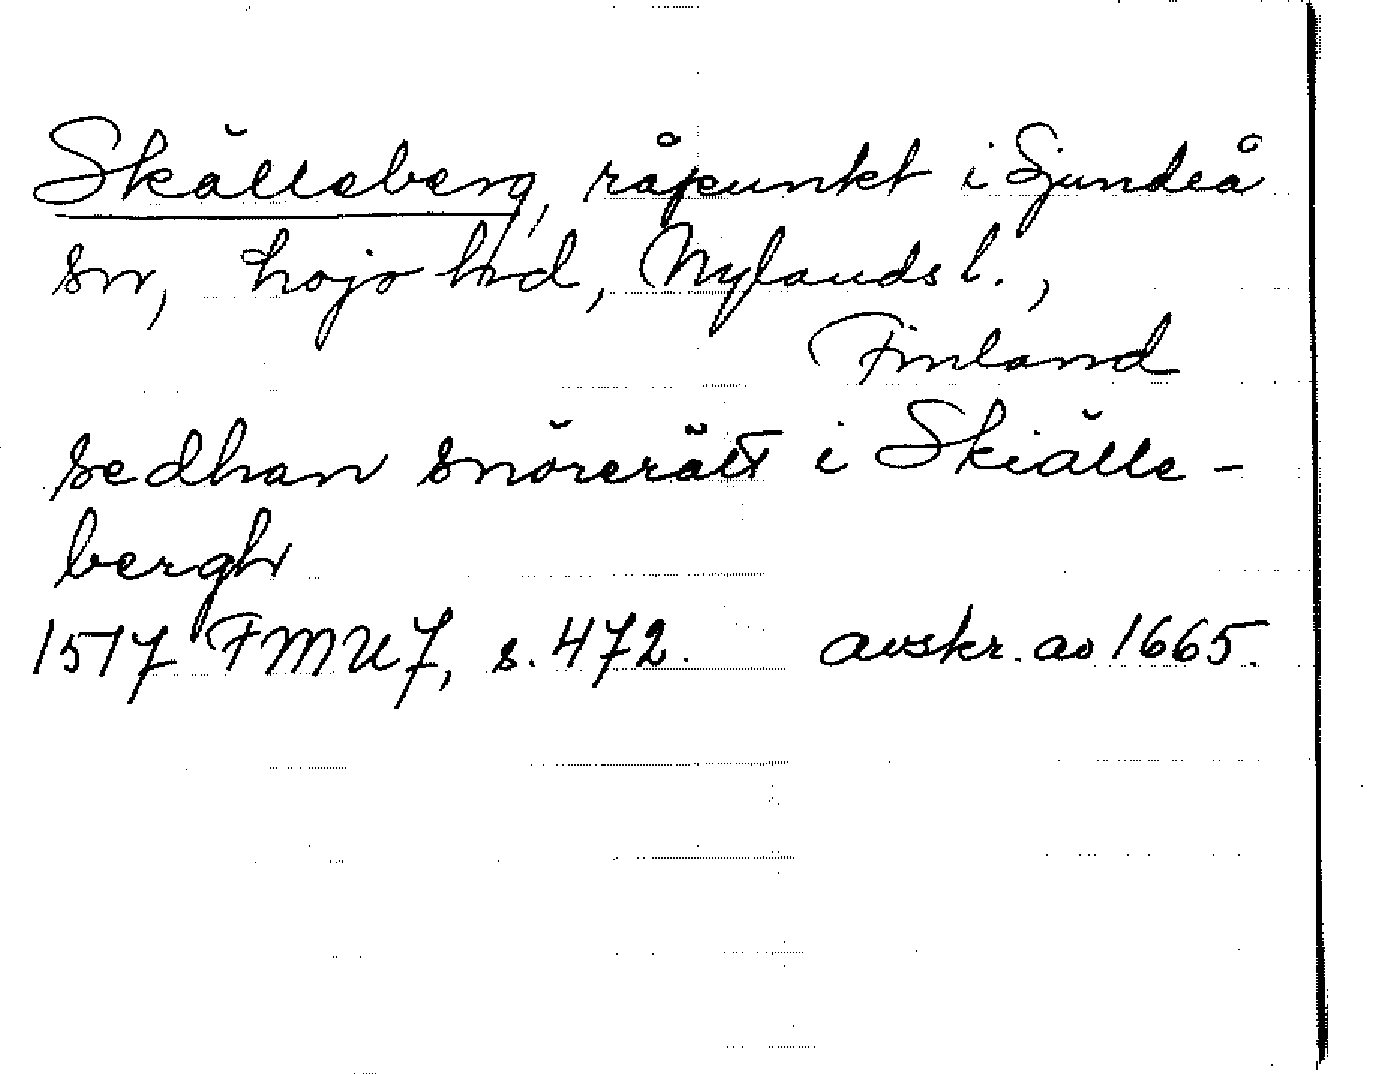 Skälleberg, råpunkt i Sjundeå
sn, Lojo hd, Nylands l.,
Finland
sedhan snörerätt i Skiälle-
bergh
1517 FMU 7, s. 472. avskr. av 1665.